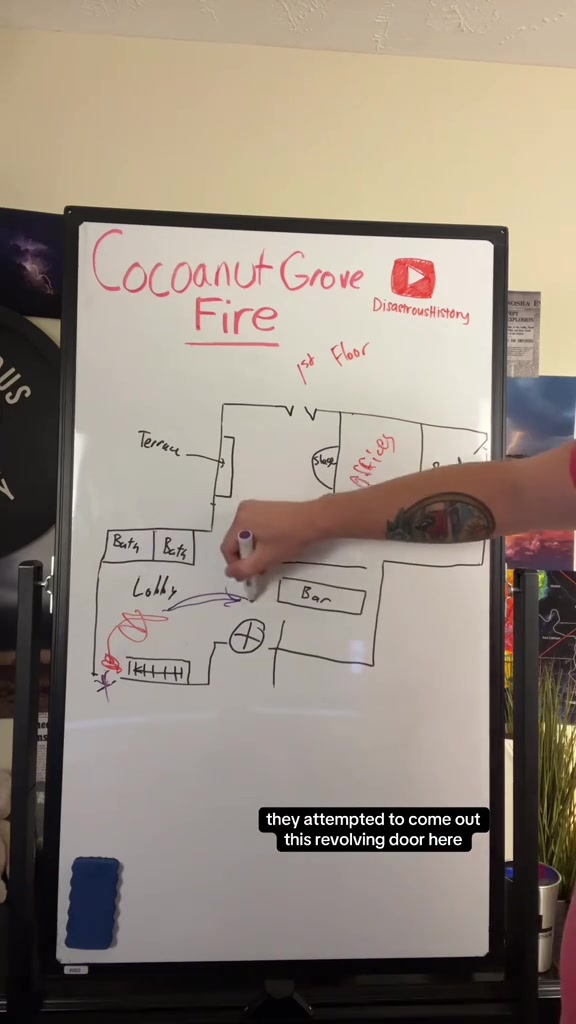 Cocoanut Grove
Fire
DisastrousHistory
1st Floor
Terrace
Stage
Offices
Bath
Bath
Lobby
Bar
they attempted to come out
this revolving door here